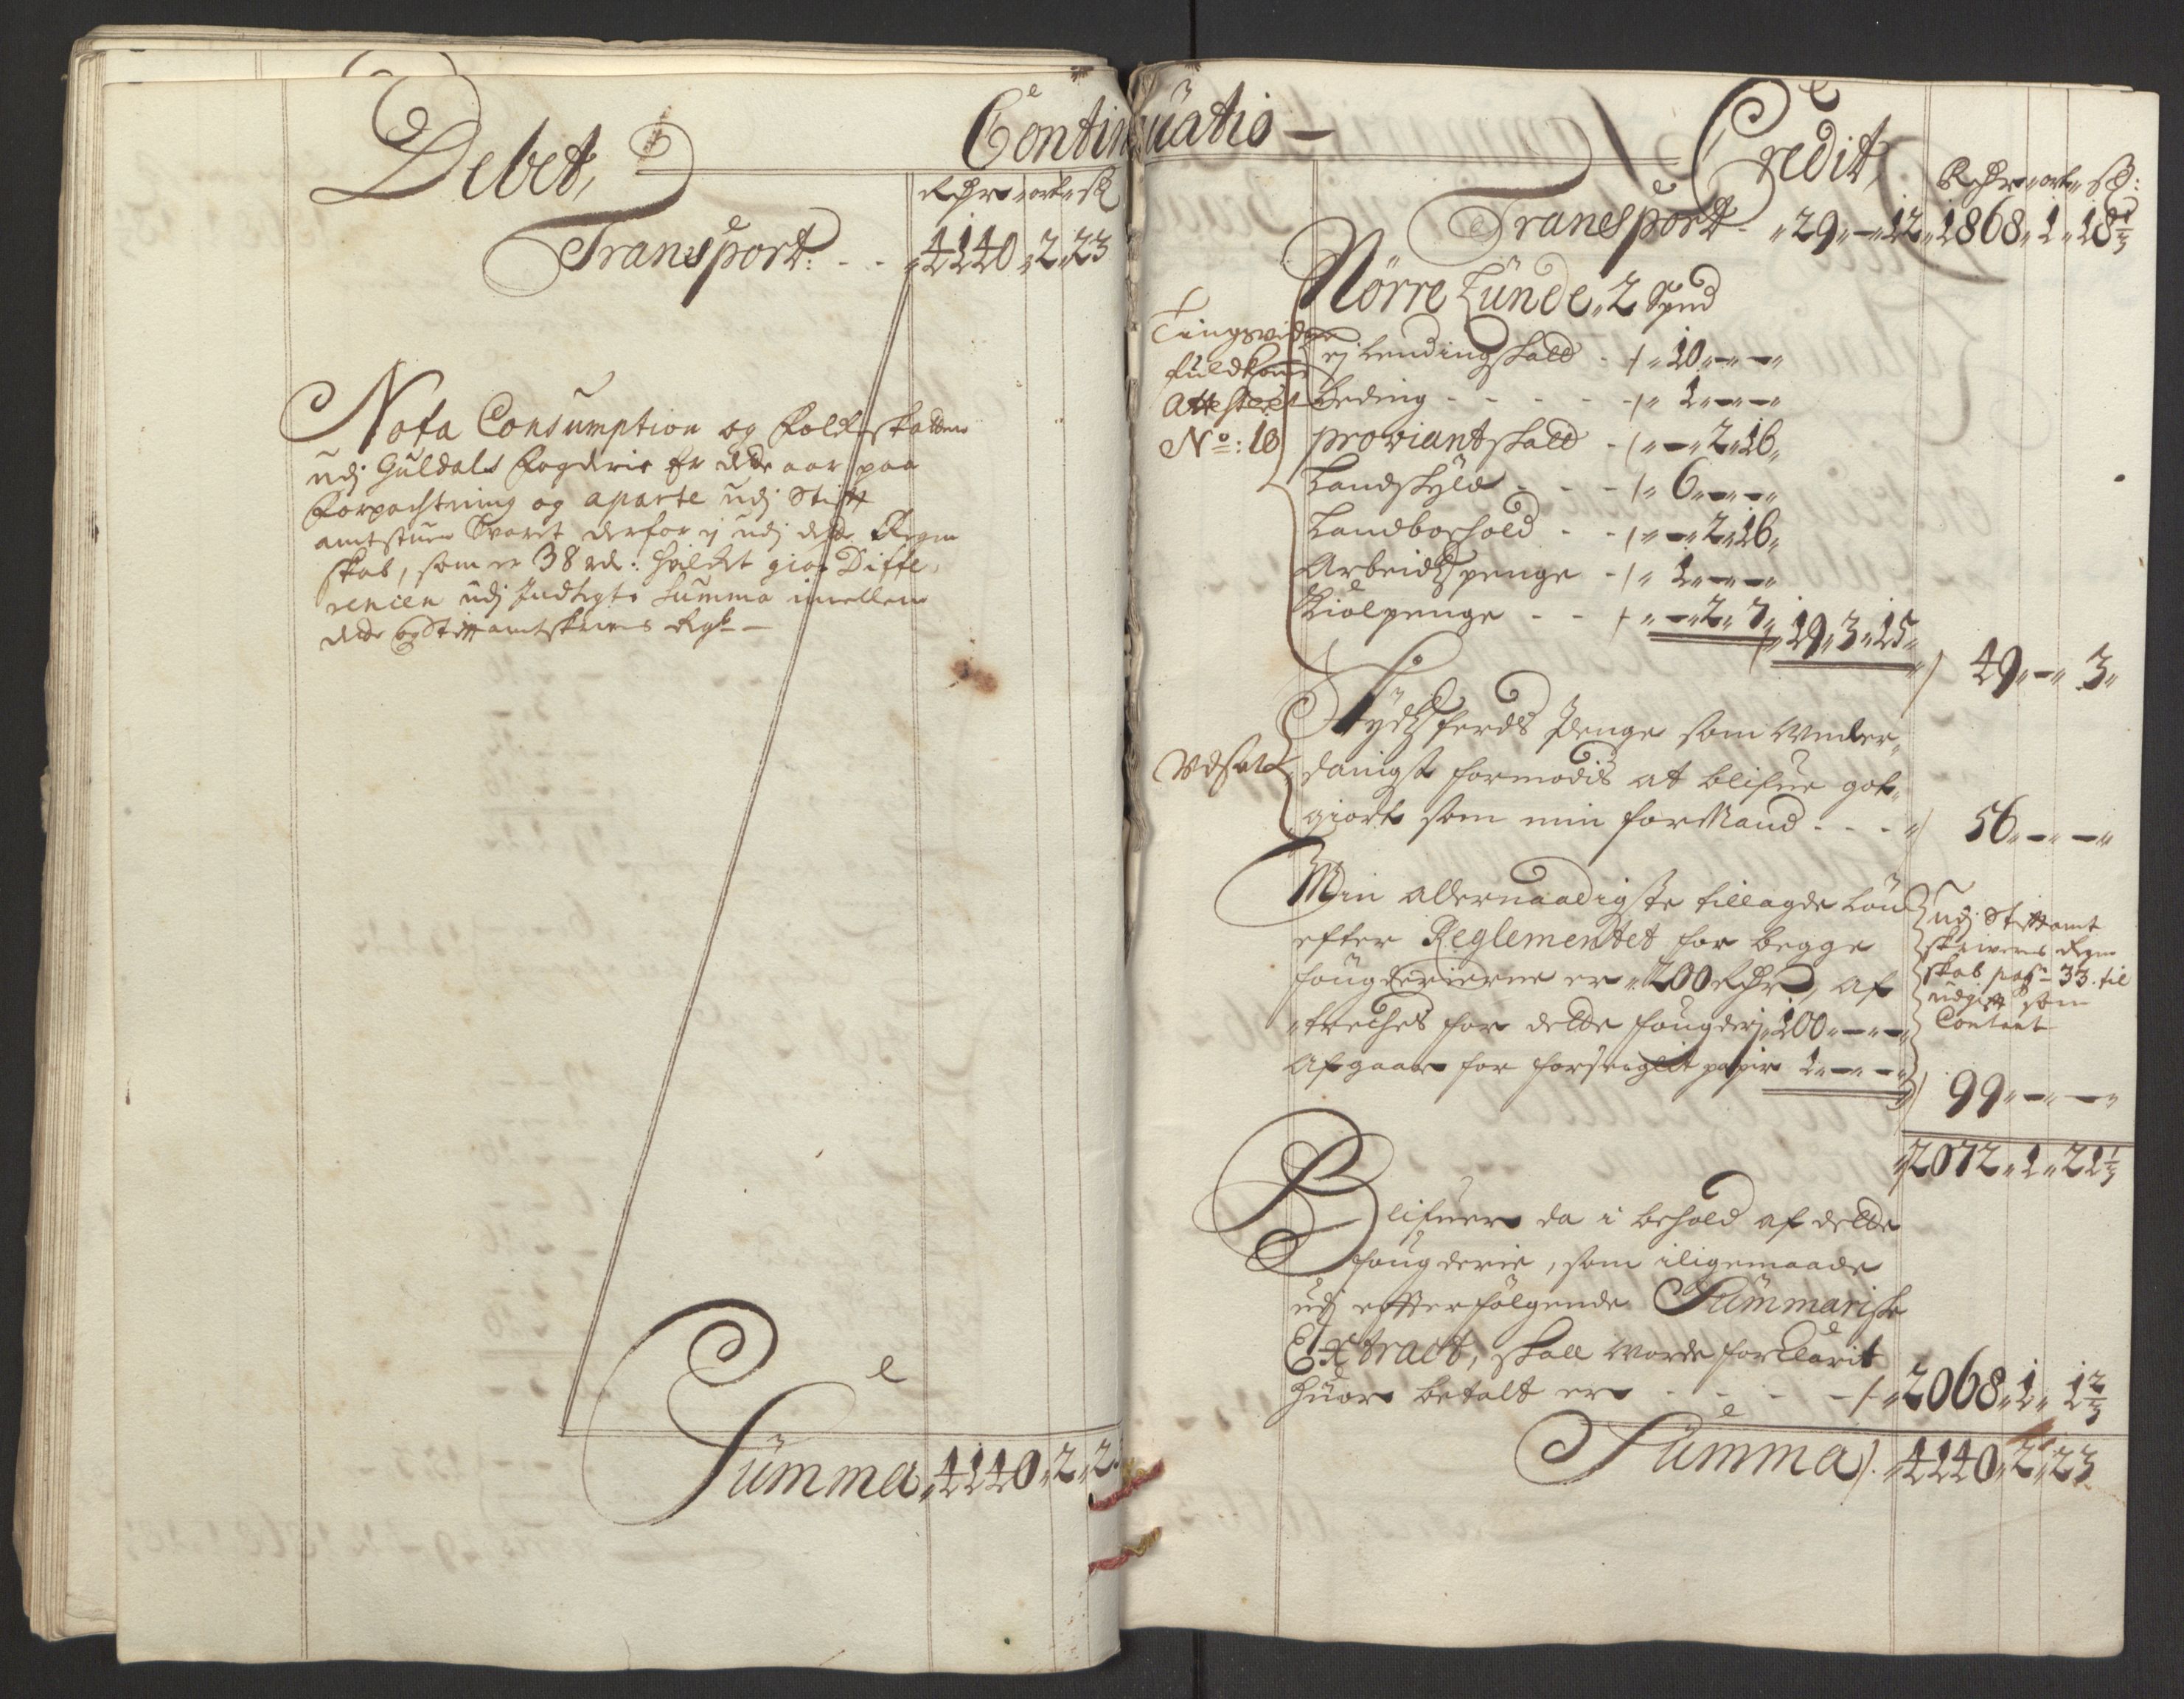 Continuatio —
Debet,
Rdr ort ß
Transport: - - 4140 „ 2 „ 23
Nota Consumption og Folkeskatten
udj Guldals Fogderie er dette aar paa
Forpachtning og aparte udj Stift
amtstuen Svaret derfor ej udj dette Regn
skab, som er 38 rdr: hvilket giør Diffe,
rencen udj Indtegts Summa imellem
dette og Stiftamtskrivers Regsk —
Summa „ 4140 „ 2 „ 2
Credit,
Rdr „ ort „ ß:
Transport - „ 29 „ — „ 12 „ 1868 „ 1 „ 18 1/3
Nörre Lunde, 2 Spand
Tingsvidne
fuldkom
Attesteret
No: 18
ej Lendingskatt - /„ 10 „ — „ — „
Leding - - - - - /„ 1 „ — „ — „
proviantskatt - /„ — „ 2 „ 16 „
Landskyld - - - /„ 6 „ — „ — „
Landboehold - - /„ — „ 2 „ 16 „
Arbeidtzpenge - /„ 1 „ — „ — „
Skiolpenge - - /„ — „ 2 „ 7 „ /„ 19 „ 3 „ 15 „ / 49 „ — „ 3 „
Tydtzferds Penge som Under,
Udsat danigst formodis at blifue got,
giort som min forMand - - - „/ 56 „ — „ — „
Min allernaadigste tillagde Løn
efter Reglementet for begge
fougderierne er „ 200 Rdr, af
treches for dette fougderj „ 100 „ — „ — „
Afgaar for forseiglet papir 1 „ — „ — „ / 99 „ — „ — „
udj Stiftamt
skrivers Regn
skab pag 33. til
udgift som
Contant
„ 2072 „ 1 „ 21 1/3
Blifuer da i behold af dette
fougderie, som iligemaade
udj efterfølgende Summariske
Extract, skall worde forklarit
huor betalt er - - - - /„ 2068 „ 1 „ 1 2/3
Summa /. „ 4140 „ 2 „ 23